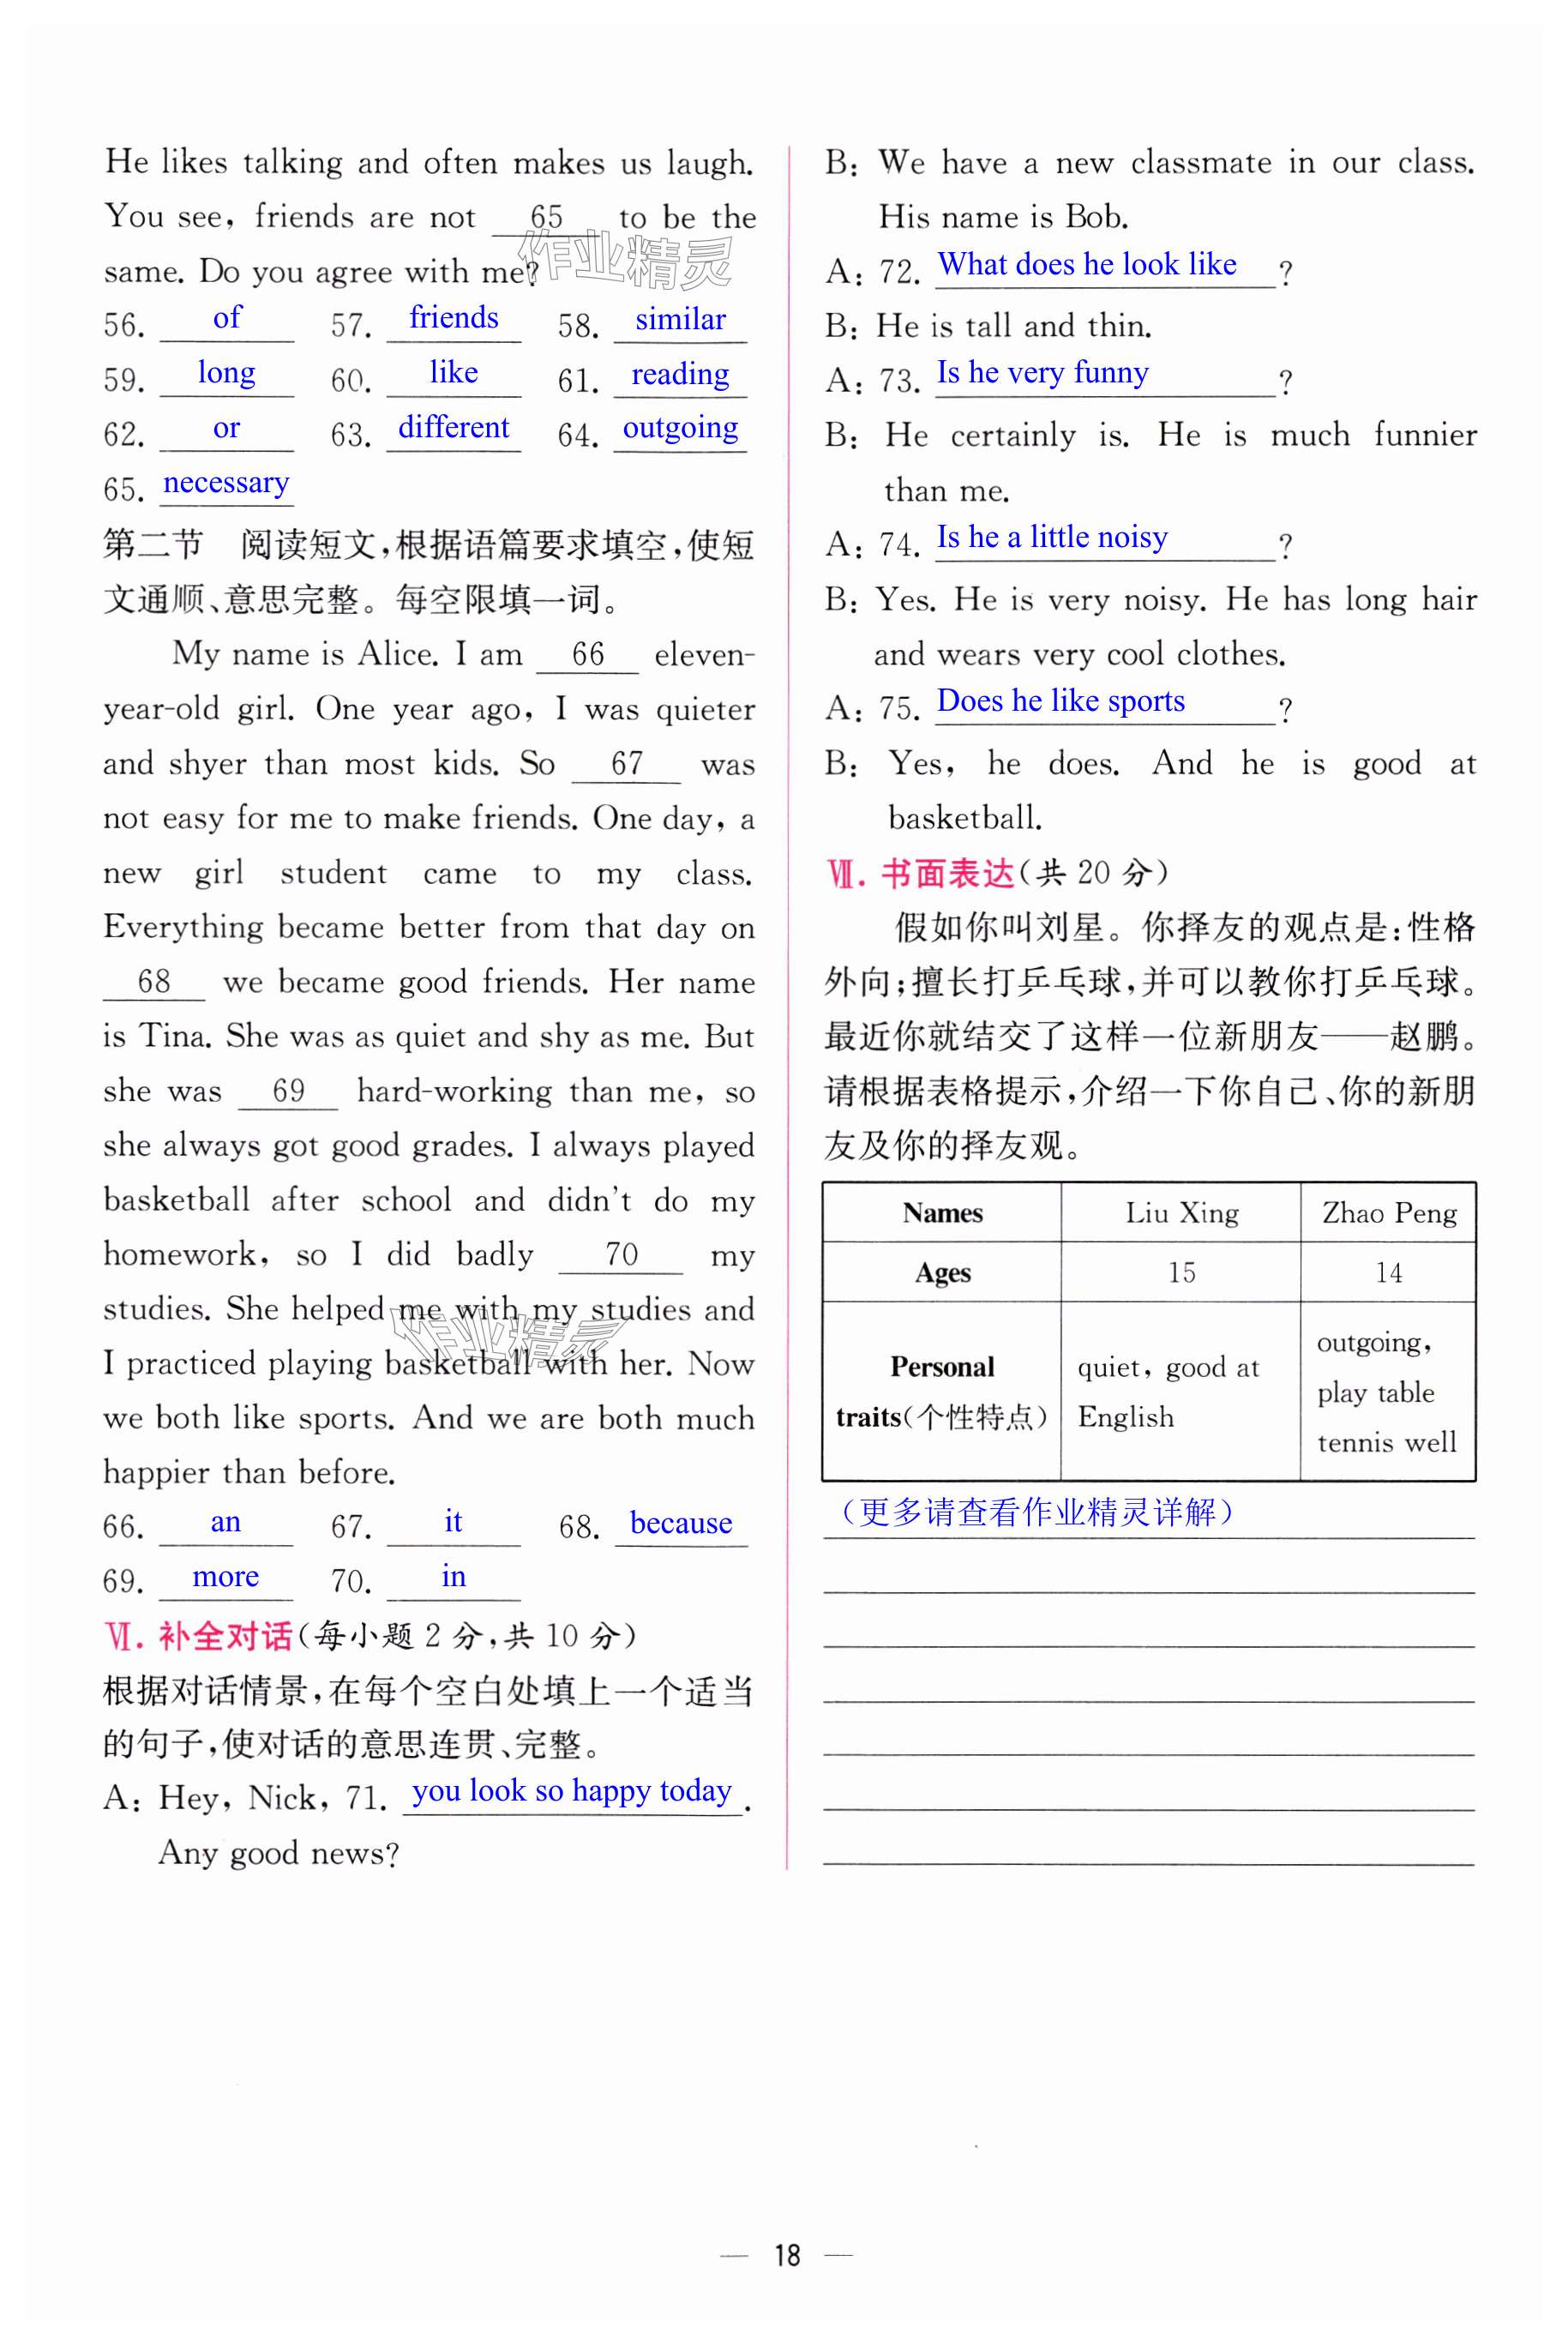 He likes talking and often makes us laugh.
You see, friends are not 65 to be the
same. Do you agree with me?
作业精灵
56. of 57. friends 58. similar
59. long 60. like 61. reading
62. or 63. different 64. outgoing
65. necessary
第二节 阅读短文,根据语篇要求填空,使短
文通顺、意思完整。每空限填一词。
My name is Alice. I am 66 eleven-
year-old girl. One year ago, I was quieter
and shyer than most kids. So 67 was
not easy for me to make friends. One day, a
new girl student came to my class.
Everything became better from that day on
68 we became good friends. Her name
is Tina. She was as quiet and shy as me. But
she was 69 hard-working than me, so
she always got good grades. I always played
basketball after school and didn't do my
homework, so I did badly 70 my
studies. She helped me with my studies and
作业精灵
I practiced playing basketball with her. Now
we both like sports. And we are both much
happier than before.
66. an 67. it 68. because
69. more 70. in
Ⅵ. 补全对话(每小题 2 分,共 10 分)
根据对话情景,在每个空白处填上一个适当
的句子,使对话的意思连贯、完整。
A: Hey, Nick, 71. you look so happy today.
Any good news?
B: We have a new classmate in our class.
His name is Bob.
A: 72. What does he look like?
B: He is tall and thin.
A: 73. Is he very funny?
B: He certainly is. He is much funnier
than me.
A: 74. Is he a little noisy?
B: Yes. He is very noisy. He has long hair
and wears very cool clothes.
A: 75. Does he like sports?
B: Yes, he does. And he is good at
basketball.
Ⅶ. 书面表达(共 20 分)
假如你叫刘星。你择友的观点是:性格
外向;擅长打乒乓球,并可以教你打乒乓球。
最近你就结交了这样一位新朋友——赵鹏。
请根据表格提示,介绍一下你自己、你的新朋
友及你的择友观。
Names Liu Xing Zhao Peng
Ages 15 14
Personal traits(个性特点) quiet, good at English outgoing, play table tennis well
(更多请查看作业精灵详解)
— 18 —